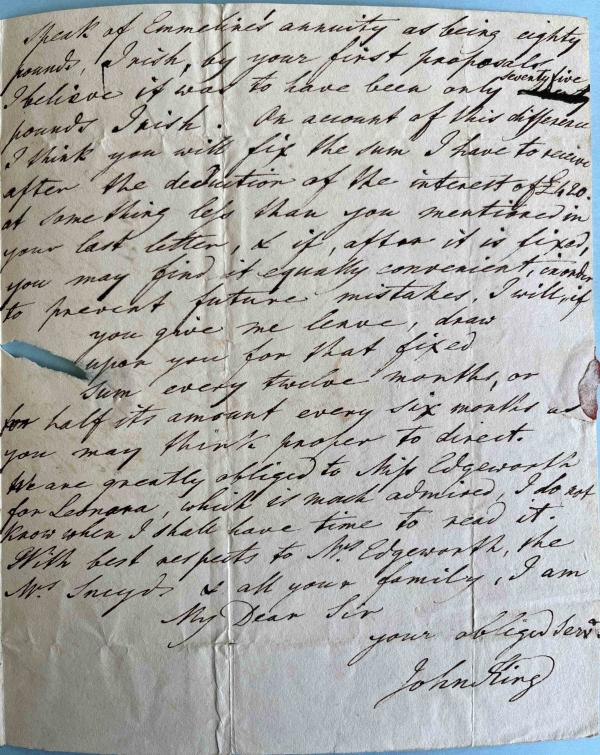 speak of Emmeline's annuity as being eighty
pounds, Irish, by your first proposals
I believe it was to have been only seventy five
pounds Irish. On account of this difference
I think you will fix the sum I have to receive
after the deduction of the interest of £420.
at something less than you mentioned in
your last letter, & if, after it is fixed,
you may find it equally convenient, in order
to prevent future mistakes, I will, if
you give me leave, draw
upon you for that fixed
sum every twelve months, or
for half its amount every six months as
you may think proper to direct.
We are greatly obliged to Miss Edgeworth
for Leonora, which is much admired, I do not
know when I shall have time to read it.
With best respects to Mrs. Edgeworth, the
Mrs Sneyds & all your family, I am
My Dear Sir
your obliged Servt
John King